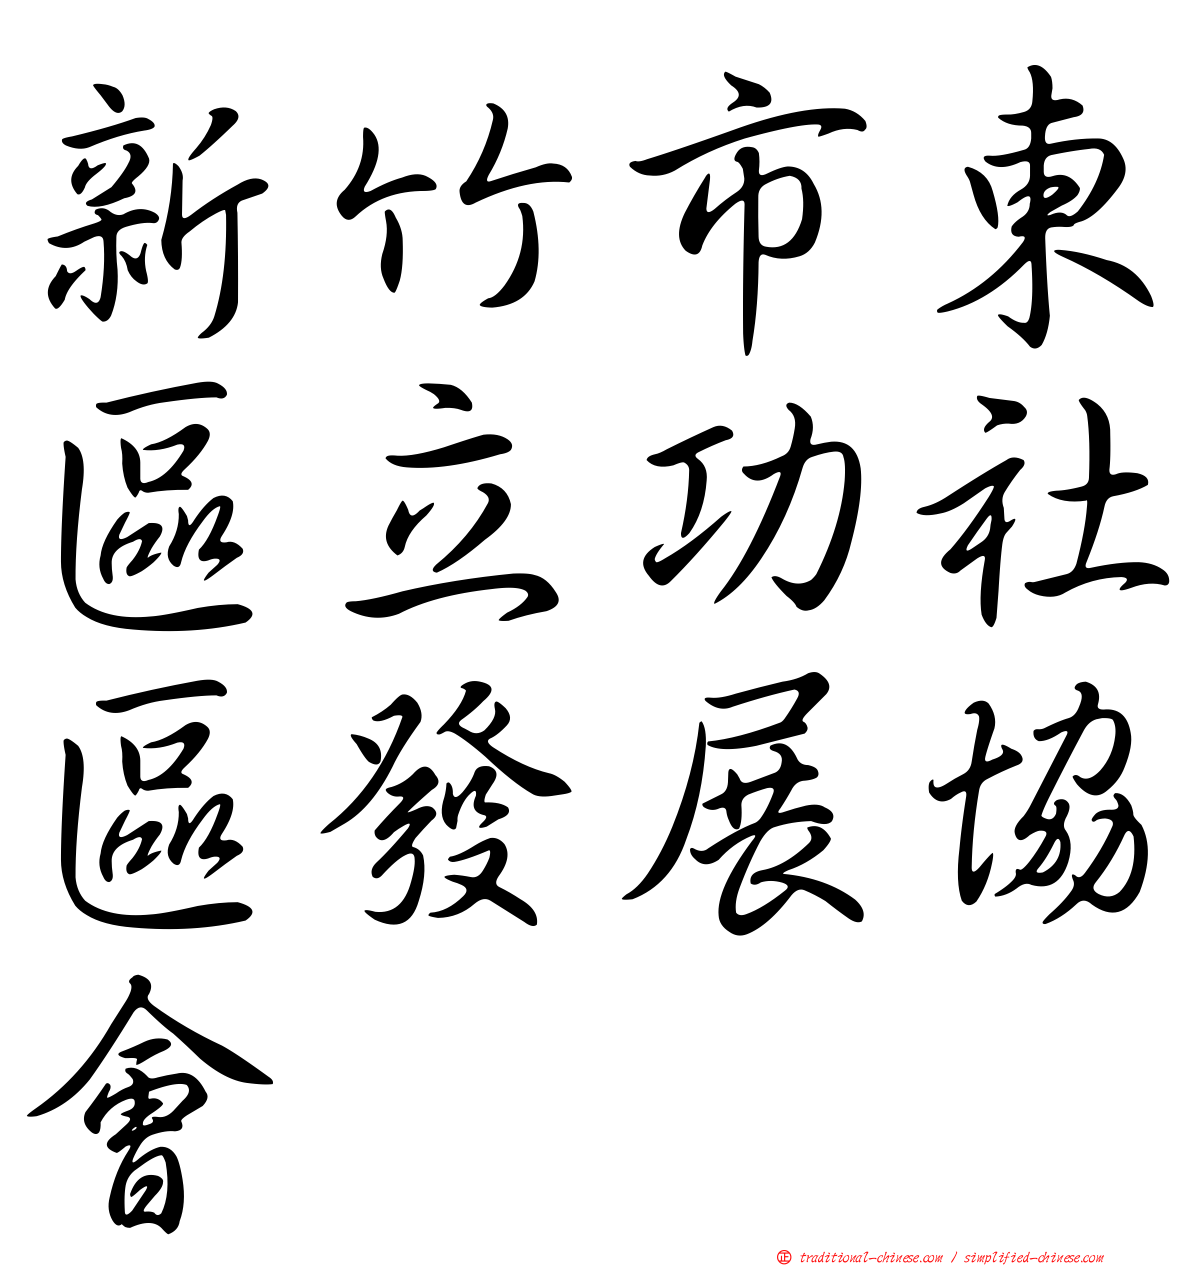 新竹市東
區立功社
區發展協
會
正 traditional-chinese.com / simplified-chinese.com